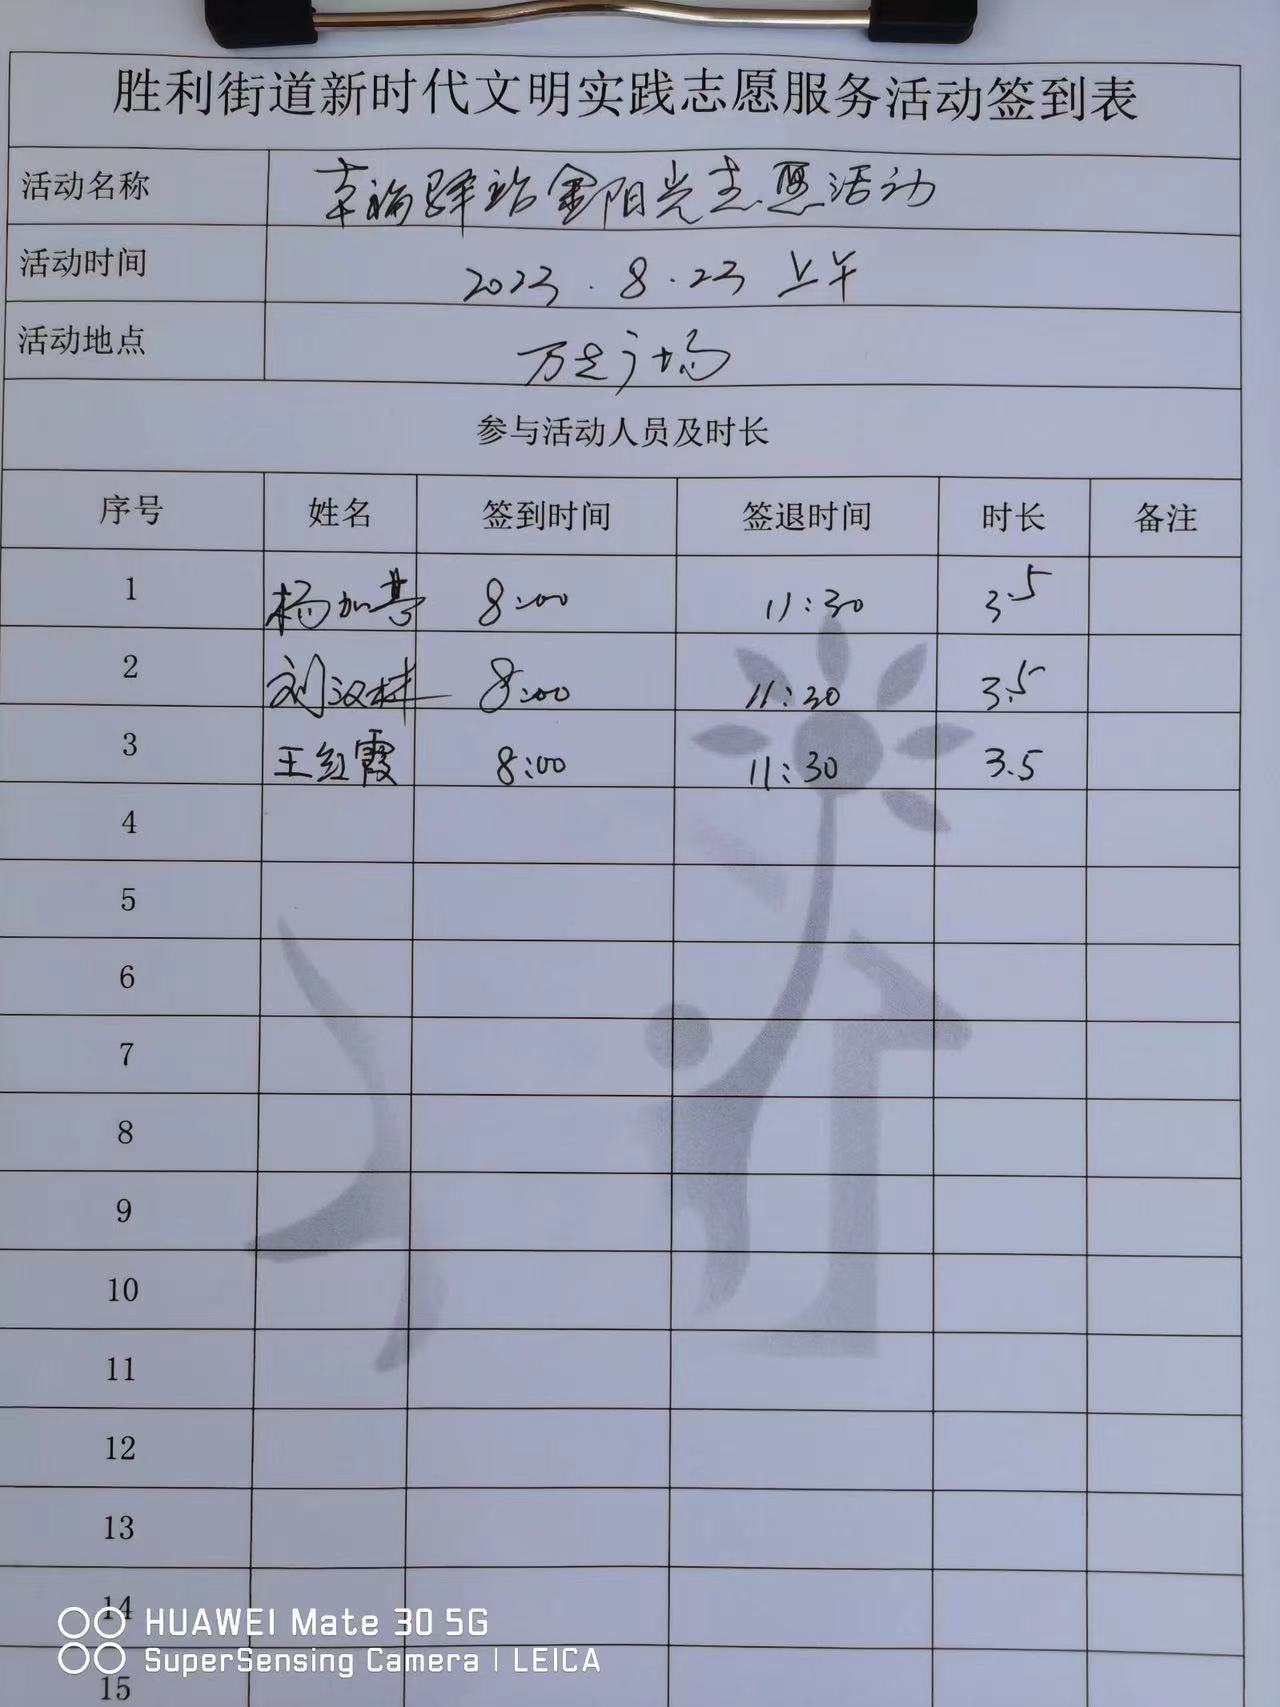 胜利街道新时代文明实践志愿服务活动签到表
活动名称 幸福驿站金阳光志愿活动
活动时间 2023.8.23 上午
活动地点 万达广场
参与活动人员及时长
序号 姓名 签到时间 签退时间 时长 备注
1 杨加 8:00 11:30 3.5
2 刘汉林 8:00 11:30 3.5
3 王红霞 8:00 11:30 3.5
4
5
6
7
8
9
10
11
12
13
14
HUAWEI Mate 30 5G
SuperSensing Camera | LEICA
15